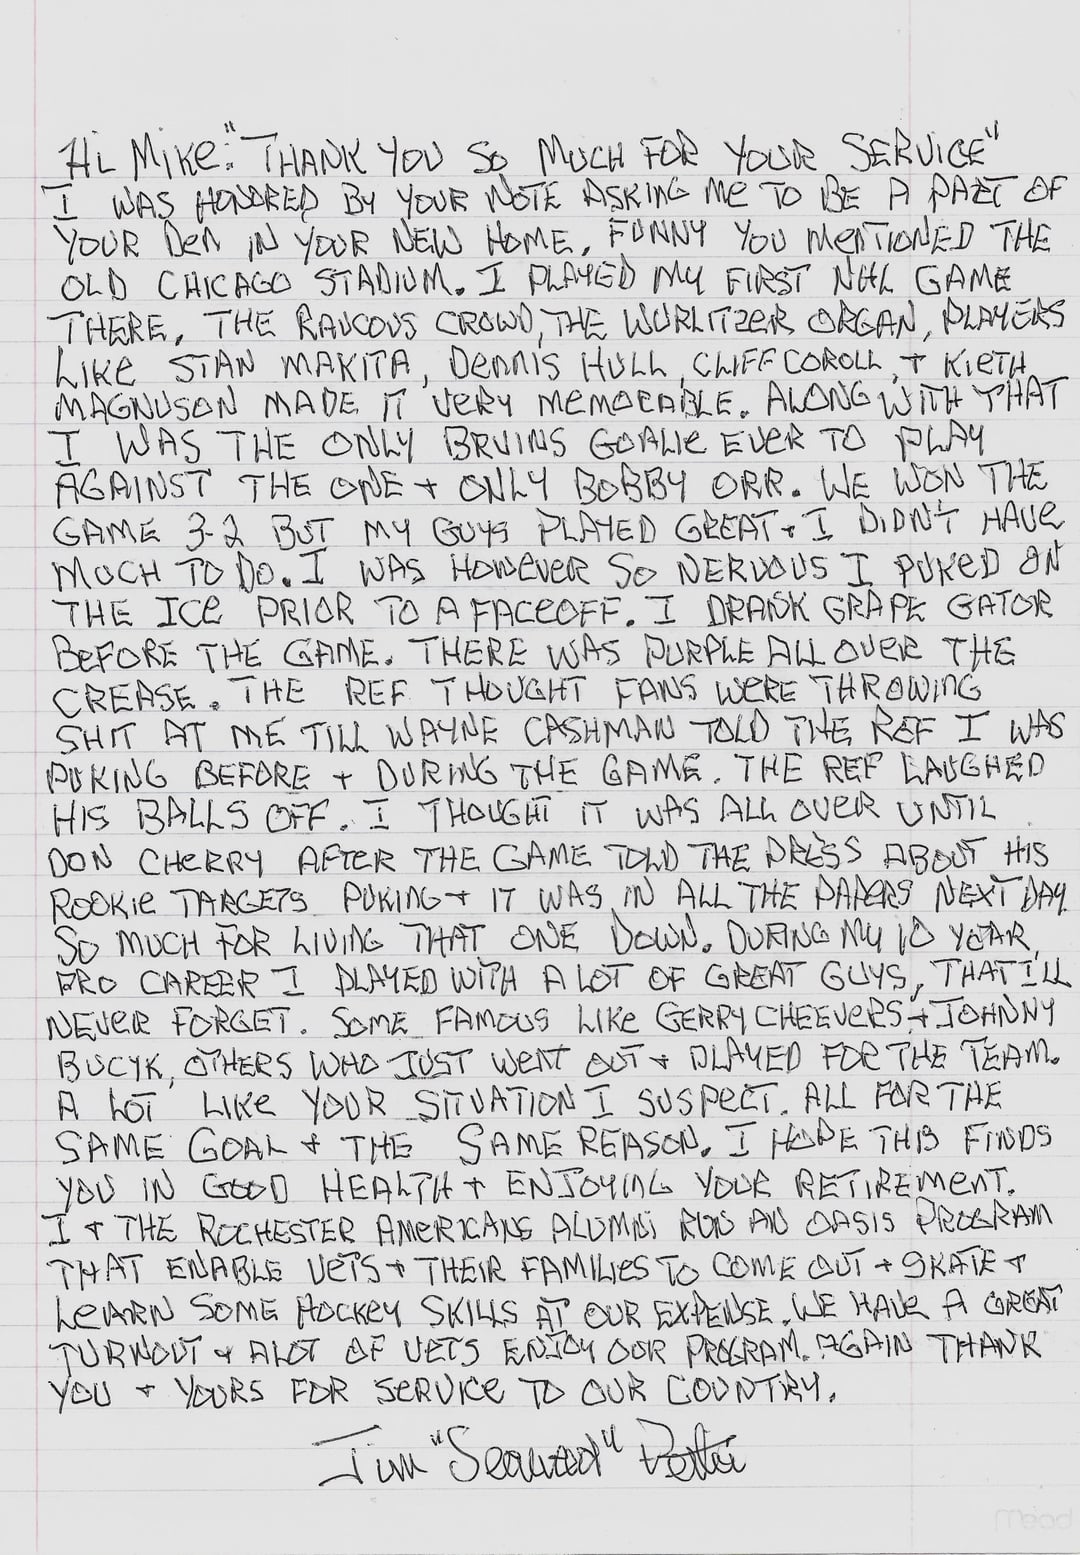 Hi Mike: "THANK YOU SO MUCH FOR YOUR SERVICE"
I WAS HONORED BY YOUR NOTE ASKING ME TO BE A PART OF
YOUR DEN IN YOUR NEW HOME. FUNNY YOU MENTIONED THE
OLD CHICAGO STADIUM. I PLAYED MY FIRST NHL GAME
THERE. THE RAUCOUS CROWD, THE WURLITZER ORGAN, PLAYERS
LIKE STAN MAKITA, DENNIS HULL, CLIFF COROLL, + KIETH
MAGNUSON MADE IT VERY MEMORABLE. ALONG WITH THAT
I WAS THE ONLY BRUINS GOALIE EVER TO PLAY
AGAINST THE ONE + ONLY BOBBY ORR. WE WON THE
GAME 3-2 BUT MY GUYS PLAYED GREAT + I DIDN'T HAVE
MUCH TO DO. I WAS HOWEVER SO NERVOUS I PUKED ON
THE ICE PRIOR TO A FACEOFF. I DRANK GRAPE GATOR
BEFORE THE GAME. THERE WAS PURPLE ALL OVER THE
CREASE. THE REF THOUGHT FANS WERE THROWING
SHIT AT ME TILL WAYNE CASHMAN TOLD THE REF I WAS
PUKING BEFORE + DURING THE GAME. THE REF LAUGHED
HIS BALLS OFF. I THOUGHT IT WAS ALL OVER UNTIL
DON CHERRY AFTER THE GAME TOLD THE PRESS ABOUT HIS
ROOKIE TARGETS PUKING + IT WAS IN ALL THE PAPERS NEXT DAY.
SO MUCH FOR LIVING THAT ONE DOWN. DURING MY 10 YEAR
PRO CAREER I PLAYED WITH A LOT OF GREAT GUYS, THAT I'LL
NEVER FORGET. SOME FAMOUS LIKE GERRY CHEEVERS + JOHNNY
BUCYK, OTHERS WHO JUST WENT OUT + PLAYED FOR THE TEAM.
A LOT LIKE YOUR SITUATION I SUSPECT. ALL FOR THE
SAME GOAL + THE SAME REASON. I HOPE THIS FINDS
YOU IN GOOD HEALTH + ENJOYING YOUR RETIREMENT.
I + THE ROCHESTER AMERICANS ALUMNI RUN AN OASIS PROGRAM
THAT ENABLE VETS + THEIR FAMILIES TO COME OUT + SKATE +
LEARN SOME HOCKEY SKILLS AT OUR EXPENSE. WE HAVE A GREAT
TURNOUT + ALOT OF VETS ENJOY OUR PROGRAM. AGAIN THANK
YOU + YOURS FOR SERVICE TO OUR COUNTRY.
Jim "Seaweed" Pettie
Mead